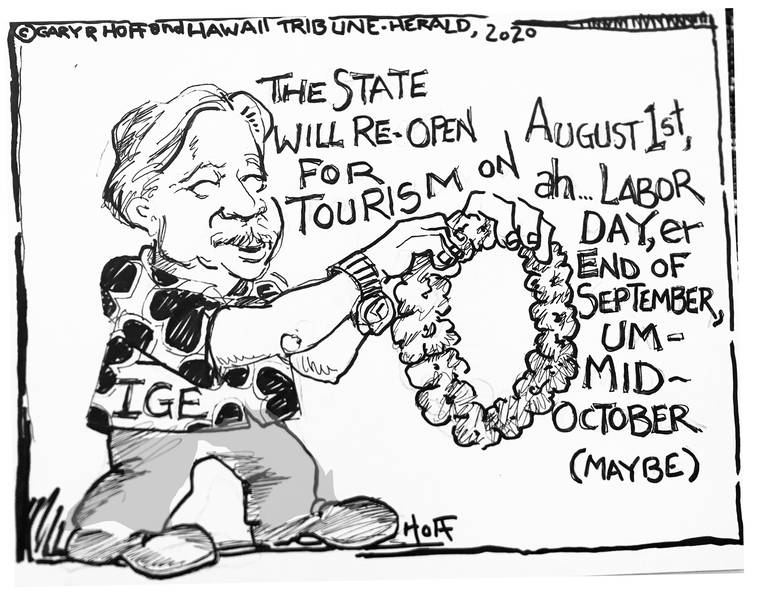 ©GARY R HOFF and HAWAII TRIBUNE-HERALD, 2020
THE STATE
WILL RE-OPEN
FOR
TOURISM ON
AUGUST 1st,
ah... LABOR
DAY, er
END OF
SEPTEMBER,
UM-
MID-
OCTOBER.
(MAYBE)
IGE
HOFF